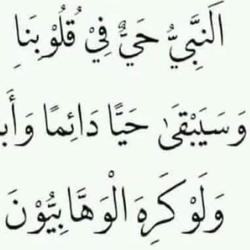 اَلنَّبِيُّ حَيٌّ فِيْ قُلُوْبِنَا
وَسَيَبْقَىٰ حَيًّا دَائِمًا
وَلَوْ كَرِهَ الْوَهَّابِيُّوْنَ